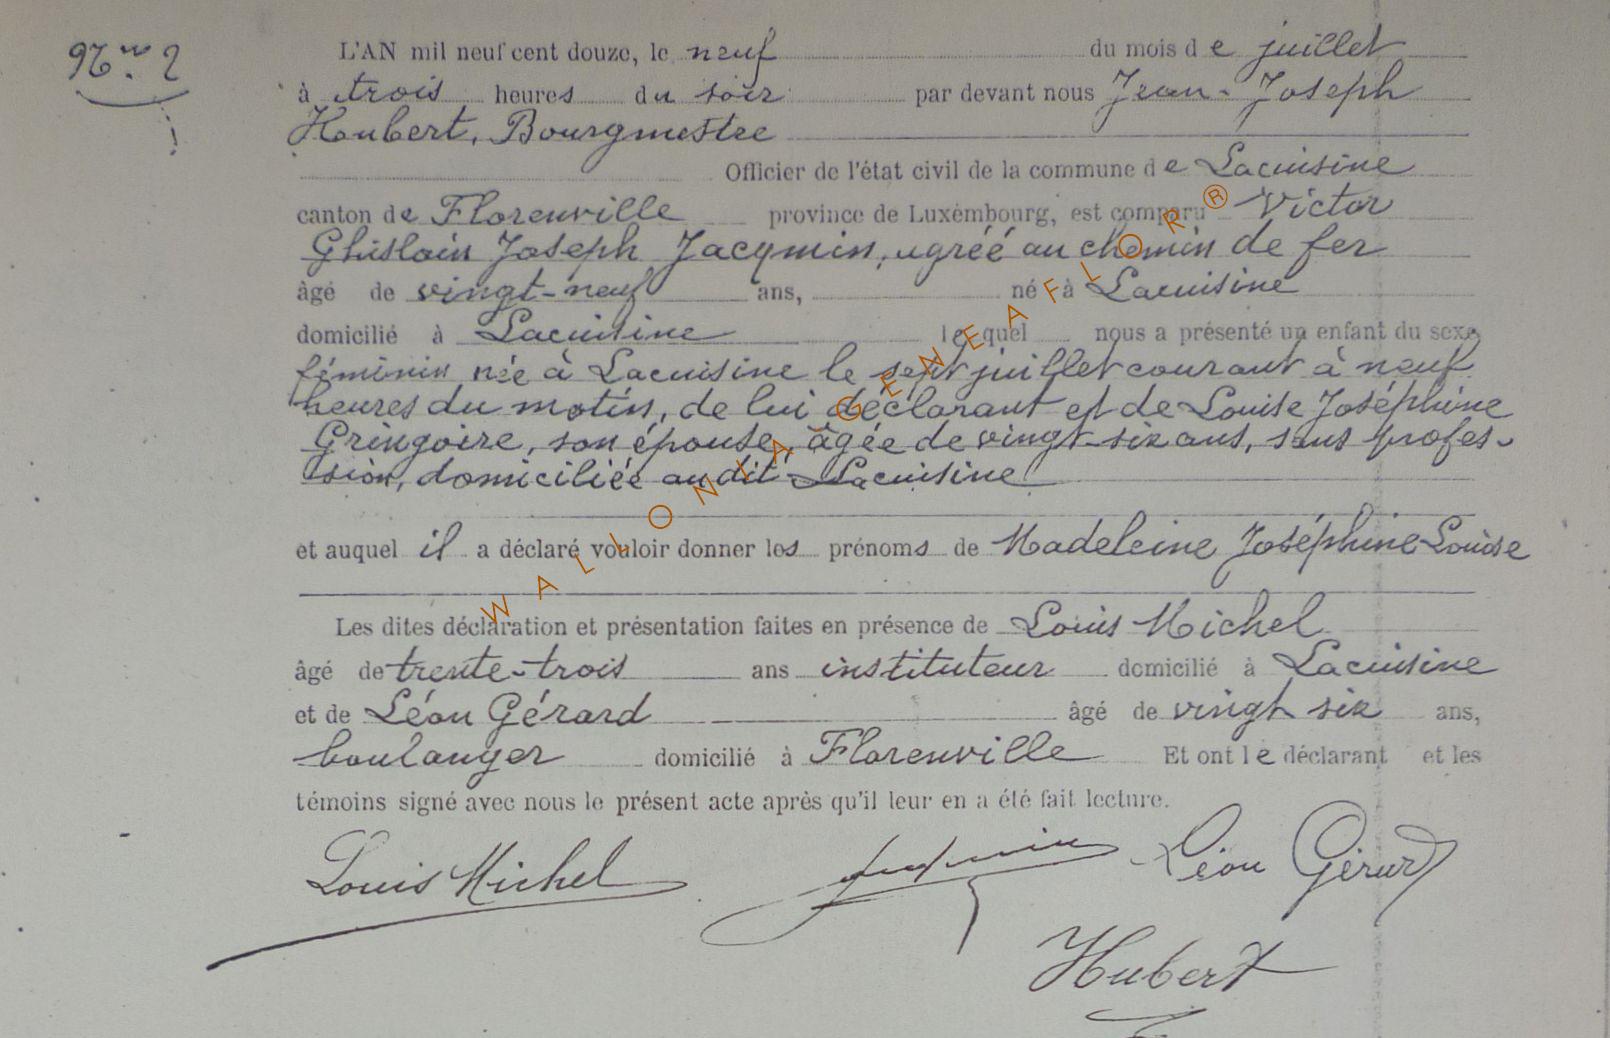 L'AN mil neuf cent douze, le neuf du mois de juillet
à trois heures du soir par devant nous Jean-Joseph
Houbert, Bourgmestre
Officier de l'état civil de la commune de Lacuisine
canton de Florenville province de Luxembourg, est comparu Victor
Ghislain Joseph Jacqmin, agréé au chemin de fer
âgé de vingt-neuf ans, né à Lacuisine
domicilié à Lacuisine lequel nous a présenté un enfant du sexe
féminin née à Lacuisine le sept juillet courant à neuf
heures du matin, de lui déclarant et de Louise Joséphine
Gringoire, son épouse, âgée de vingt-six ans, sans profes-
sion, domiciliée au dit Lacuisine
et auquel il a déclaré vouloir donner les prénoms de Madeleine Joséphine Louise
Les dites déclaration et présentation faites en présence de Louis Michel
âgé de trente-trois ans instituteur domicilié à Lacuisine
et de Léon Gérard âgé de vingt six ans,
boulanger domicilié à Florenville Et ont le déclarant et les
témoins signé avec nous le présent acte après qu'il leur en a été fait lecture.
Louis Michel Jacqmin Léon Gérard
Hubert
WALLONIA GENEAFLOR®